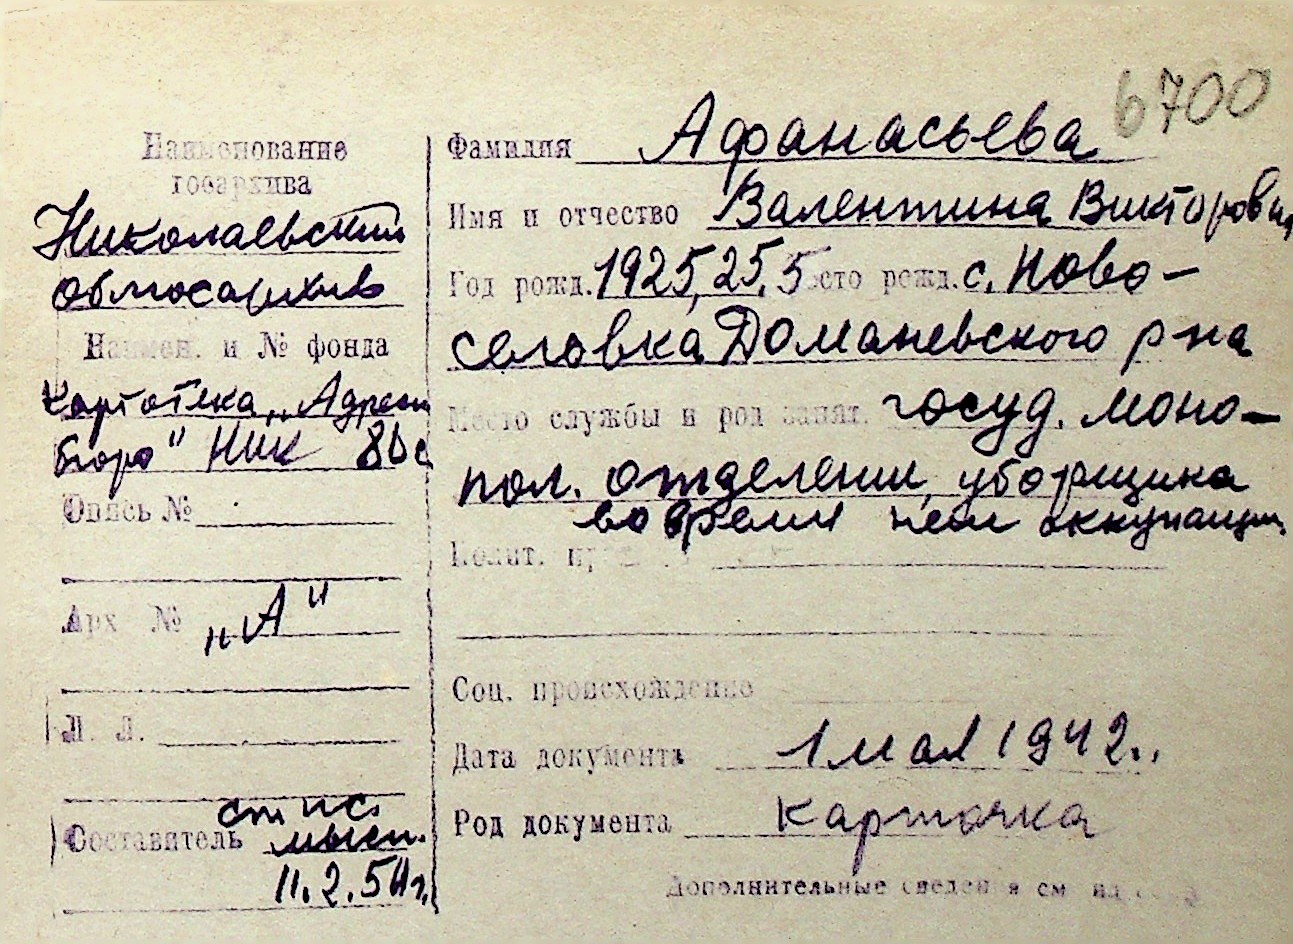 6700
Наименование
госархива
Николаевский
облгосархив
Наимен. и № фонда
картотека „Адресн
бюро"
Опись №
Арх №
„А"
Л. Л.
Составитель
11.2.54г.
Фамилия Афанасьева
Имя и отчество Валентина Викторовна
Год рожд. 1925, 25, 5 сто рожд. с. Ново-
селовка Доманевского р-на
Место службы и род занят. госуд. моно-
пол. отделении, уборщика
во время нем оккупации
Полит. пр
Соц. происхождение
Дата документа 1 мая 1942..
Род документа карточка
Дополнительные сведения см на